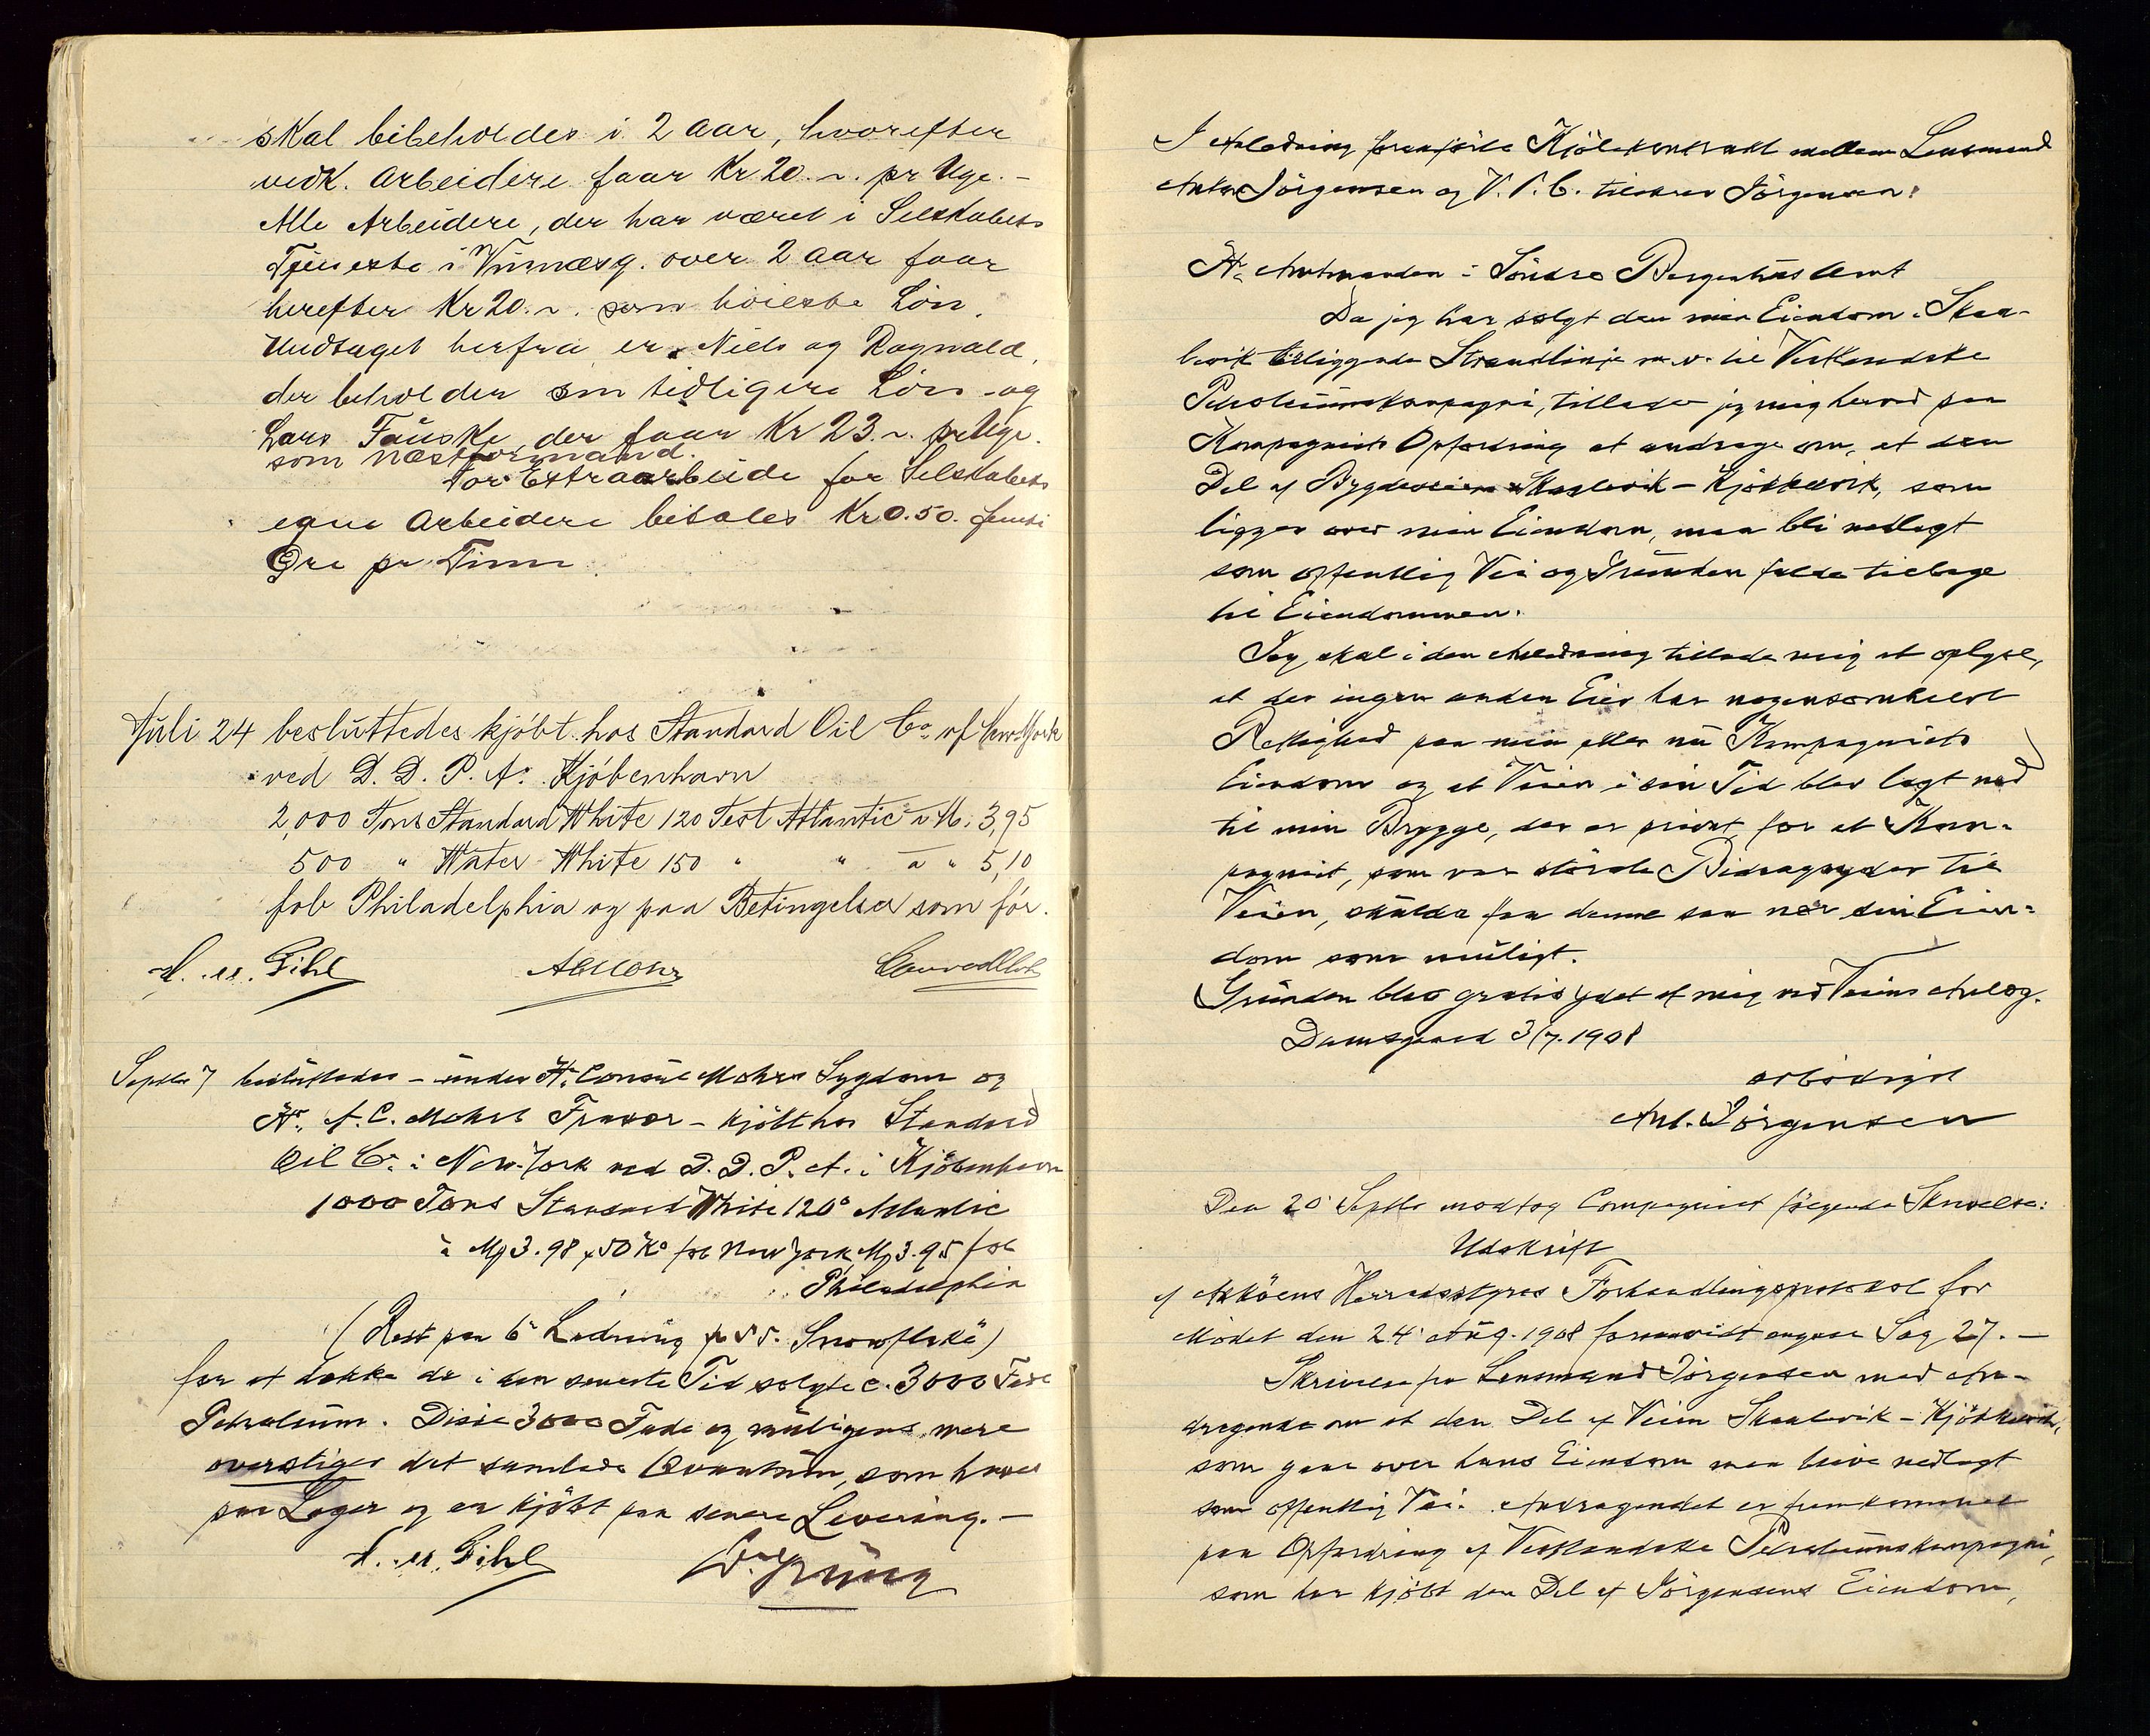 skal bibeholdes i 2 Aar, hvorefter
vedk. Arbeidere faar Kr 20.~. pr Uge. –
Alle Arbeidere, der har været i Selskabets
Tjeneste i over 2 Aar faar
herefter Kr 20.~. som høieste Løn.
Undtaget herfra er Niels og Ragnald,
der beholder sin tidligere Løn og
Lars Fauske, der faar Kr 23.~. pr Uge.
som Næstformand.
For Extraarbeide for Selskabets
egne Arbeidere betales Kr 0.50. femti
Øre pr Time.
Juli 24 besluttedes kjöbt hos Standard Oil Co. of New York
ved D. D. P. A. Kjöbenhavn
2,000 Tons Standard White 120 Test Atlantic a M. 3,95
500 " Water White 150 " " a " 5,10
fob Philadelphia og paa Betingelser som för.
Pihl
Sepbr 7 besluttedes – under Hr. Consul Mohrs Sygdom og
Hr. A. C. Mohrs Fravær – kjöbt hos Standard
Oil Co. i New-York ved D. D. P. A. i Kjöbenhavn
1000 Tons Standard White 120° Atlantic
a Mj 3.98 p 50 Ko fob New York, Mj 3.95 fob
Philadelphia
(Rest paa Ladning pr SS. Snowflake)
for at dække de i den seneste Tid solgte c. 3000 Fade
Petroleum. Disse 3000 Fade og muligens mere
overstiger det samlede Qvantum, som haves
paa Lager og er kjöbt paa senere Levering. –
Pihl W. Grüng
I Anledning Kjöbekontrakt mellem Lensmand
Anton Jörgensen og V. P. C. tilskrev Jörgensen:
Hr. Amtmanden i Söndre Bergenhus Amt
Da jeg har solgt den min Eiendom i Skaa-
levik tilliggende Strandlinje m. v. til Vestlandske
Petroleumskompagni, tillader jeg mig herved paa
Kompagniets Opfordring at andrage om, at den
Del af Bygdeveien Skaalevik – Kjökkelvik, som
ligger over min Eiendom, maa bli nedlagt
som offentlig Vei og Grunden falde tilbage
til Eiendommen.
Jeg skal i den Anledning tillade mig at oplyse,
at der ingen anden Eier har nogensomhelst
Rettighed paa min eller nu Kompagniets
Eiendom og at Veien i sin Tid blev lagt ned
til min Brygge, der er privat, for at Kom-
pagniet, som var störste Bidragsyder til
Veien, skulde faa denne saa nær sin Eien-
dom som muligt.
Grunden blev gratis ydet af mig ved Veiens Anlæg.
Damsgaard 3/7. 1908
ærbödigst
Ant. Jörgensen
Den 20' Septbr modtog Compagniet fölgende Skrivelse:
Udskrift
af Asköens Herredsstyres Forhandlingsprotokol for
Mödet den 24' Aug. 1908 forsaavidt angaar Sag 27. –
Skrivelse fra Lensmand Jörgensen med An-
dragende om at den Del af Veien Skaalevik – Kjökkelvik,
som gaar over hans Eiendom maa blive nedlagt
som offentlig Vei. Andragendet er fremkommet
paa Opfordring af Vestlandske Petroleumskompagni,
som har kjöbt den Del af Jörgensens Eiendom,